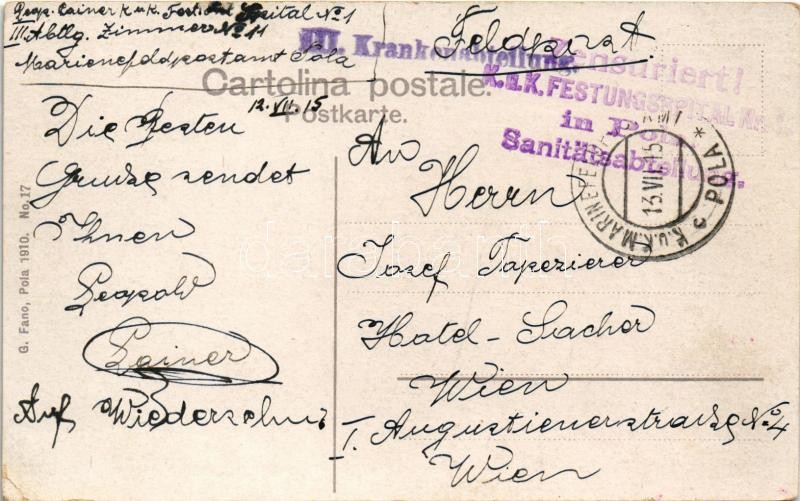 Leop. Lainer k. u. k. Festungs Spital No 1
III Abtlg. Zimmer No 11
Marinefeldpostamt Pola
Feldpost.
III. Krankenabteilung.
Zensuriert!
K.u.K. FESTUNGSSPITAL Nr. 1.
in Pola
Sanitätsabteilung.
Cartolina postale.
Postkarte.
12. VII. 15
K.u.K. MARINEFELDPOSTAMT
POLA
c
13.VII.15
Die Besten
Grusze sendet
Ihnen
Leopold
Lainer
Auf Wiedersehn
An
Herrn
Josef Tapezierer
Hotel-Sacher
Wien
I. Augustienerstrasze No 4
Wien
G. Fano, Pola 1910. No. 17
darabanth